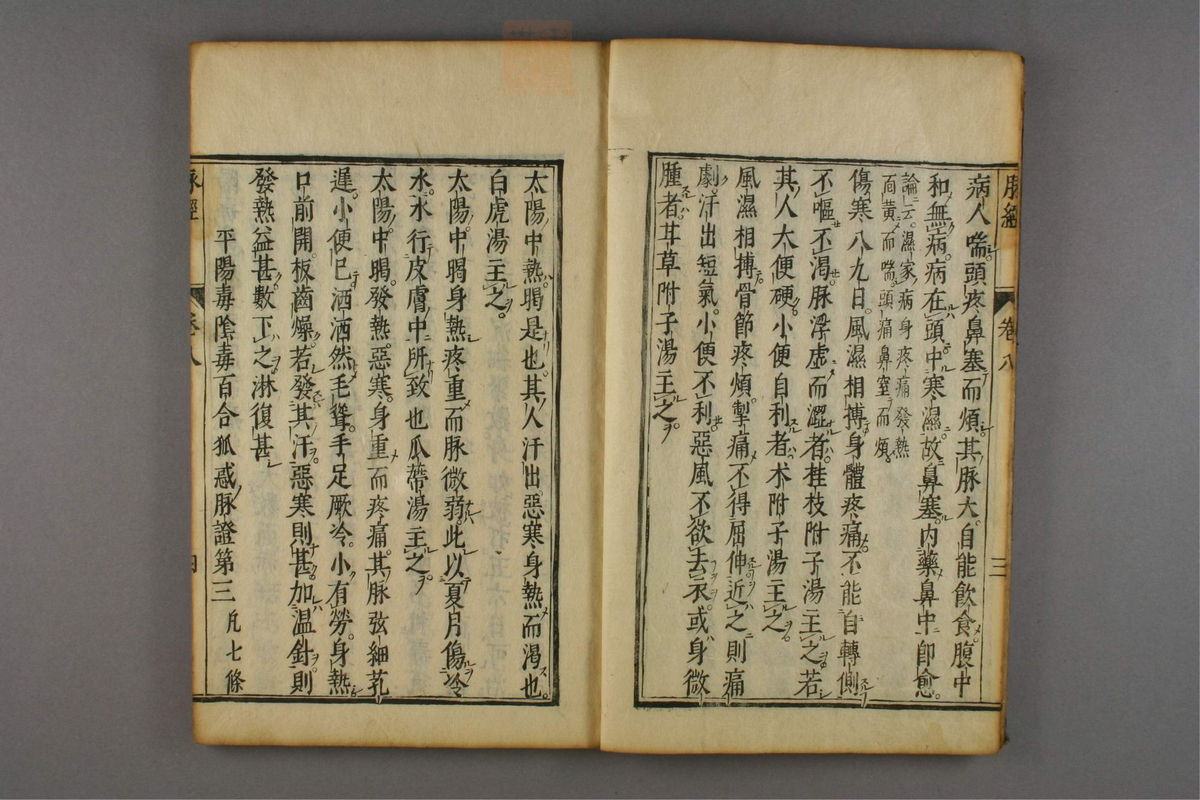 脉經 卷八 三
病人喘頭疼鼻塞而煩其脉大自能飲食腹中
和無病病在頭中寒濕故鼻塞内藥鼻中即愈
論云濕家病身疼痛發熱
面黄而喘頭痛鼻窒而煩
傷寒八九日風濕相摶身體疼痛不能自轉側
不嘔不渴脉浮虚而澀者桂枝附子湯主之若
其人大便硬小便自利者术附子湯主之
風濕相摶骨節疼煩掣痛不得屈伸近之則痛
劇汗出短氣小便不利惡風不欲去衣或身微
腫者甘草附子湯主之
太陽中熱暍是也其人汗出惡寒身熱而渴也
白虎湯主之
太陽中暍身熱疼重而脉微弱此以夏月傷冷
水水行皮膚中所致也瓜蒂湯主之
太陽中暍發熱惡寒身重而疼痛其脉弦細芤
遲小便已洒洒然毛聳手足厥冷小有勞身熱
口前開板齒燥若發其汗惡寒則甚加温針則
發熱益甚數下之淋復甚
平陽毒陰毒百合狐惑脉證第三 凡七條
脉經 卷八 四